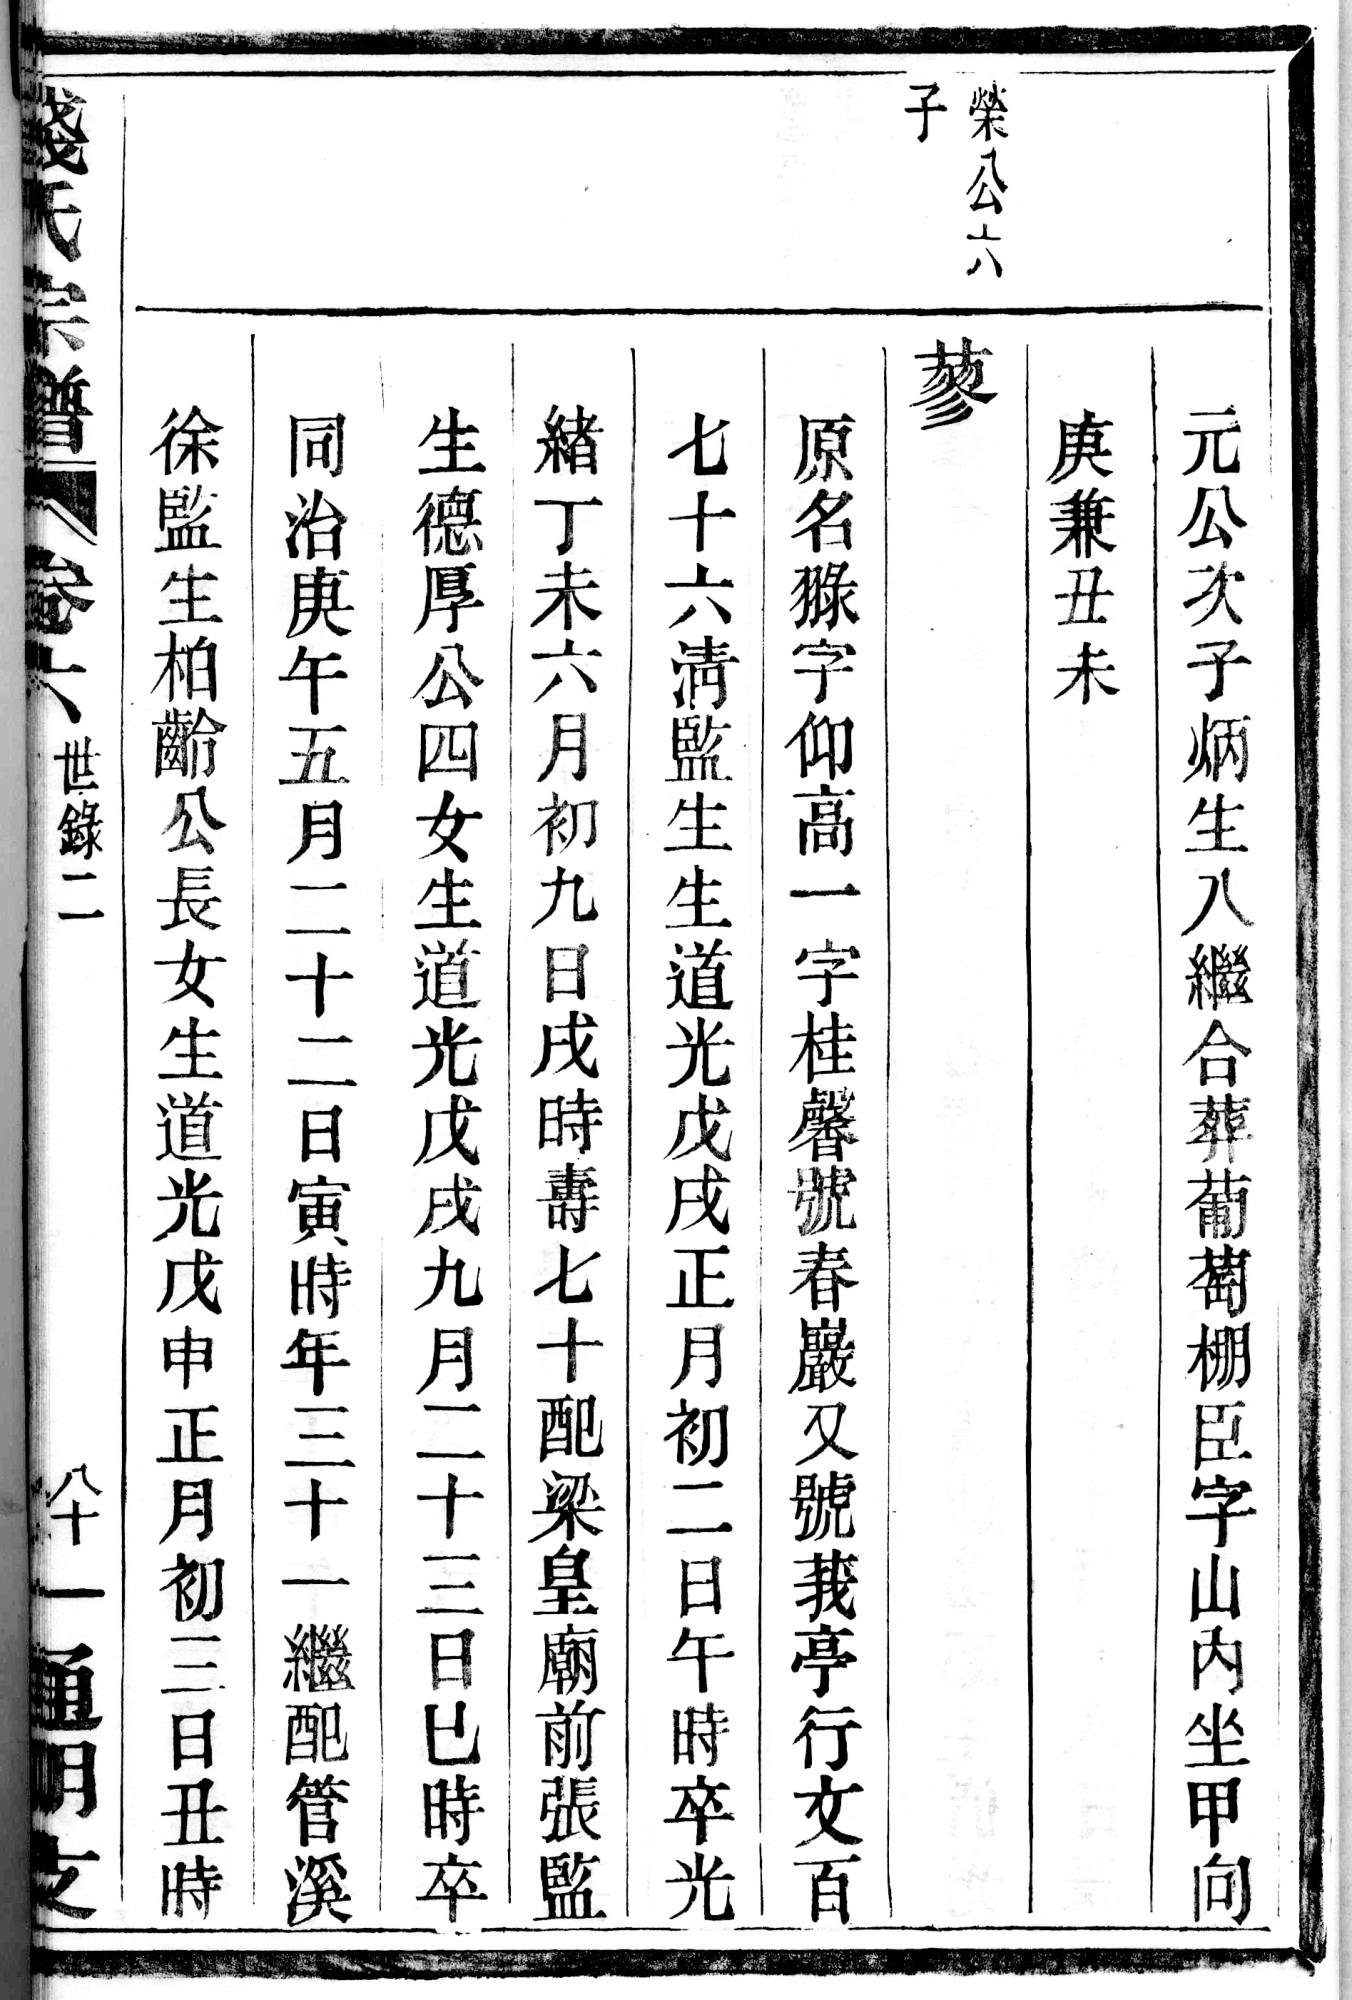 元公次子炳生入繼合葬葡萄棚臣字山內坐甲向
庚兼丑未
榮公六
子
蓼
原名䅼字仰高一字桂馨號春巖又號莪亭行文百
七十六清監生生道光戊戌正月初二日午時卒光
緒丁未六月初九日戌時壽七十配梁皇廟前張監
生德厚公四女生道光戊戌九月二十三日巳時卒
同治庚午五月二十二日寅時年三十一繼配管溪
徐監生柏齡公長女生道光戊申正月初三日丑時
錢氏宗譜 卷六 世錄二 八十一 通明支